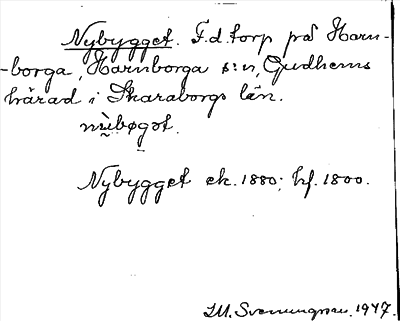 Nybygget. F.d. torp på Horn-
-borga, Hornborga s:n, Gudhems
härad i Skaraborgs län.
nẁ̰bøgət.
Nybygget ek. 1880; hf. 1800.
Svenungsson. 1947.